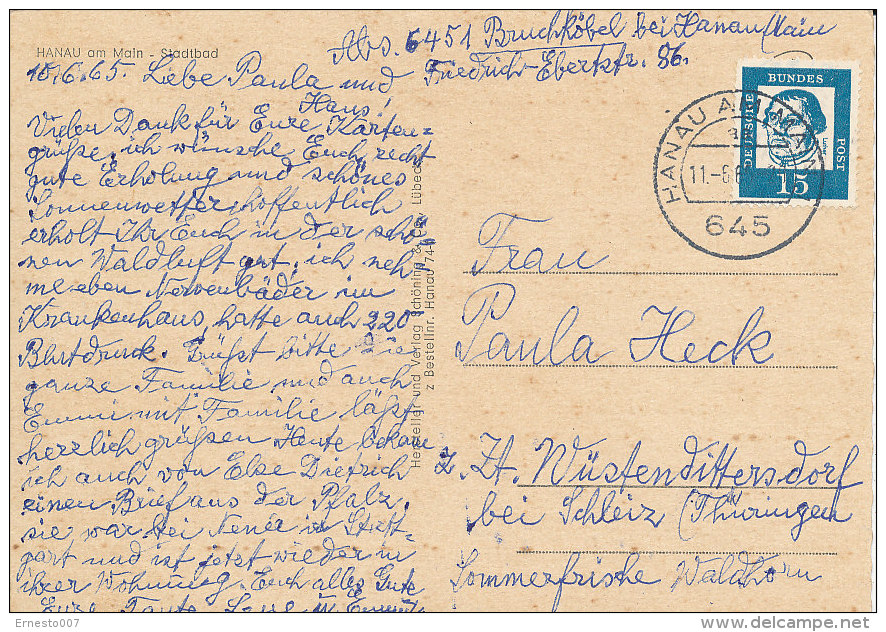 HANAU am Main - Stadtbad
Abs. 6451 Bruchköbel bei Hanau/Main
Friedrich-Ebertstr. 86.
10.6.65. Liebe Paula und
Hans!
Vielen Dank für Eure Karten=
grüße, ich wünsche Euch recht
gute Erholung und schönes
Sonnenwetter, hoffentlich
erholt Ihr Euch in der schö
nen Waldluft gut, ich neh
me eben Nervenbäder im
Krankenhaus, hatte auch 220
Blutdruck. Grüßt bitte die
ganze Familie und auch
Emmi mit Familie läßt
herzlich grüßen. Heute bekam
ich auch von Else Dietrich
einen Brief aus der Pfalz,
sie war bei in Stutt-
gart und ist jetzt wieder in
ihrer Wohnung. Euch alles Gute
Eure Tante
Hersteller und Verlag Schöning & Lübeck
z Bestellnr. Hanau 74
DEUTSCHE BUNDES POST
15
HANAU AM MAIN
11.-6.6
645
Frau
Paula Heck
z. Zt. Wüstendittersdorf
bei Schleiz (Thüringen
Sommerfrische Waldhorn
Ernesto007
delcampe.net